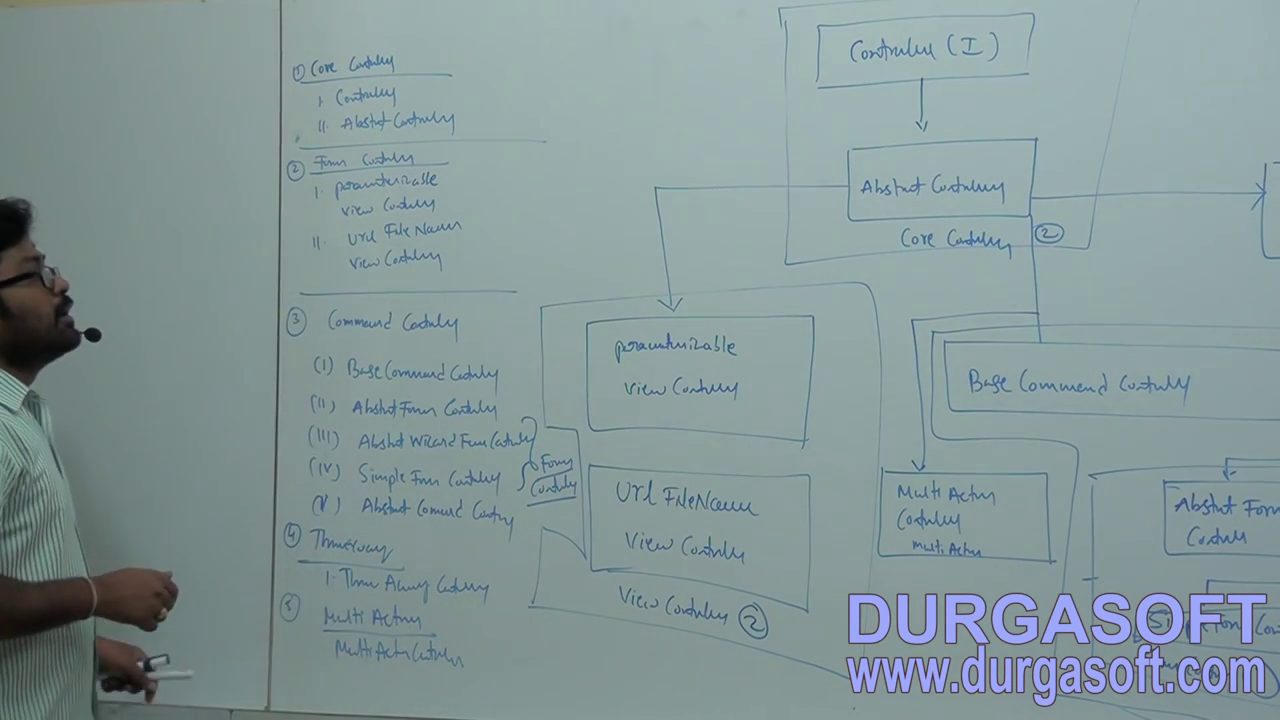 ① Core Controller
I. Controller
II. Abstract Controller
② Form Controller
I. parameterizable
view Controller
II. Url FileName
view Controller
③ Command Controller
(I) Base Command Controller
(II) Abstract Form Controller
(III) Abstract Wizard Form Controller
(IV) Simple Form Controller
(V) Abstract Command Controller
Form
Controller
④
I.
⑤ Multi Action
Multi Action Controller
Controller (I)
Abstract Controller
Core Controller ②
parameterizable
view Controller
Url FileName
View Controller
View Controller ②
Base Command Controller
Multi Action
Controller
Multi Action
Abstract Form
Controller
DURGASOFT
www.durgasoft.com